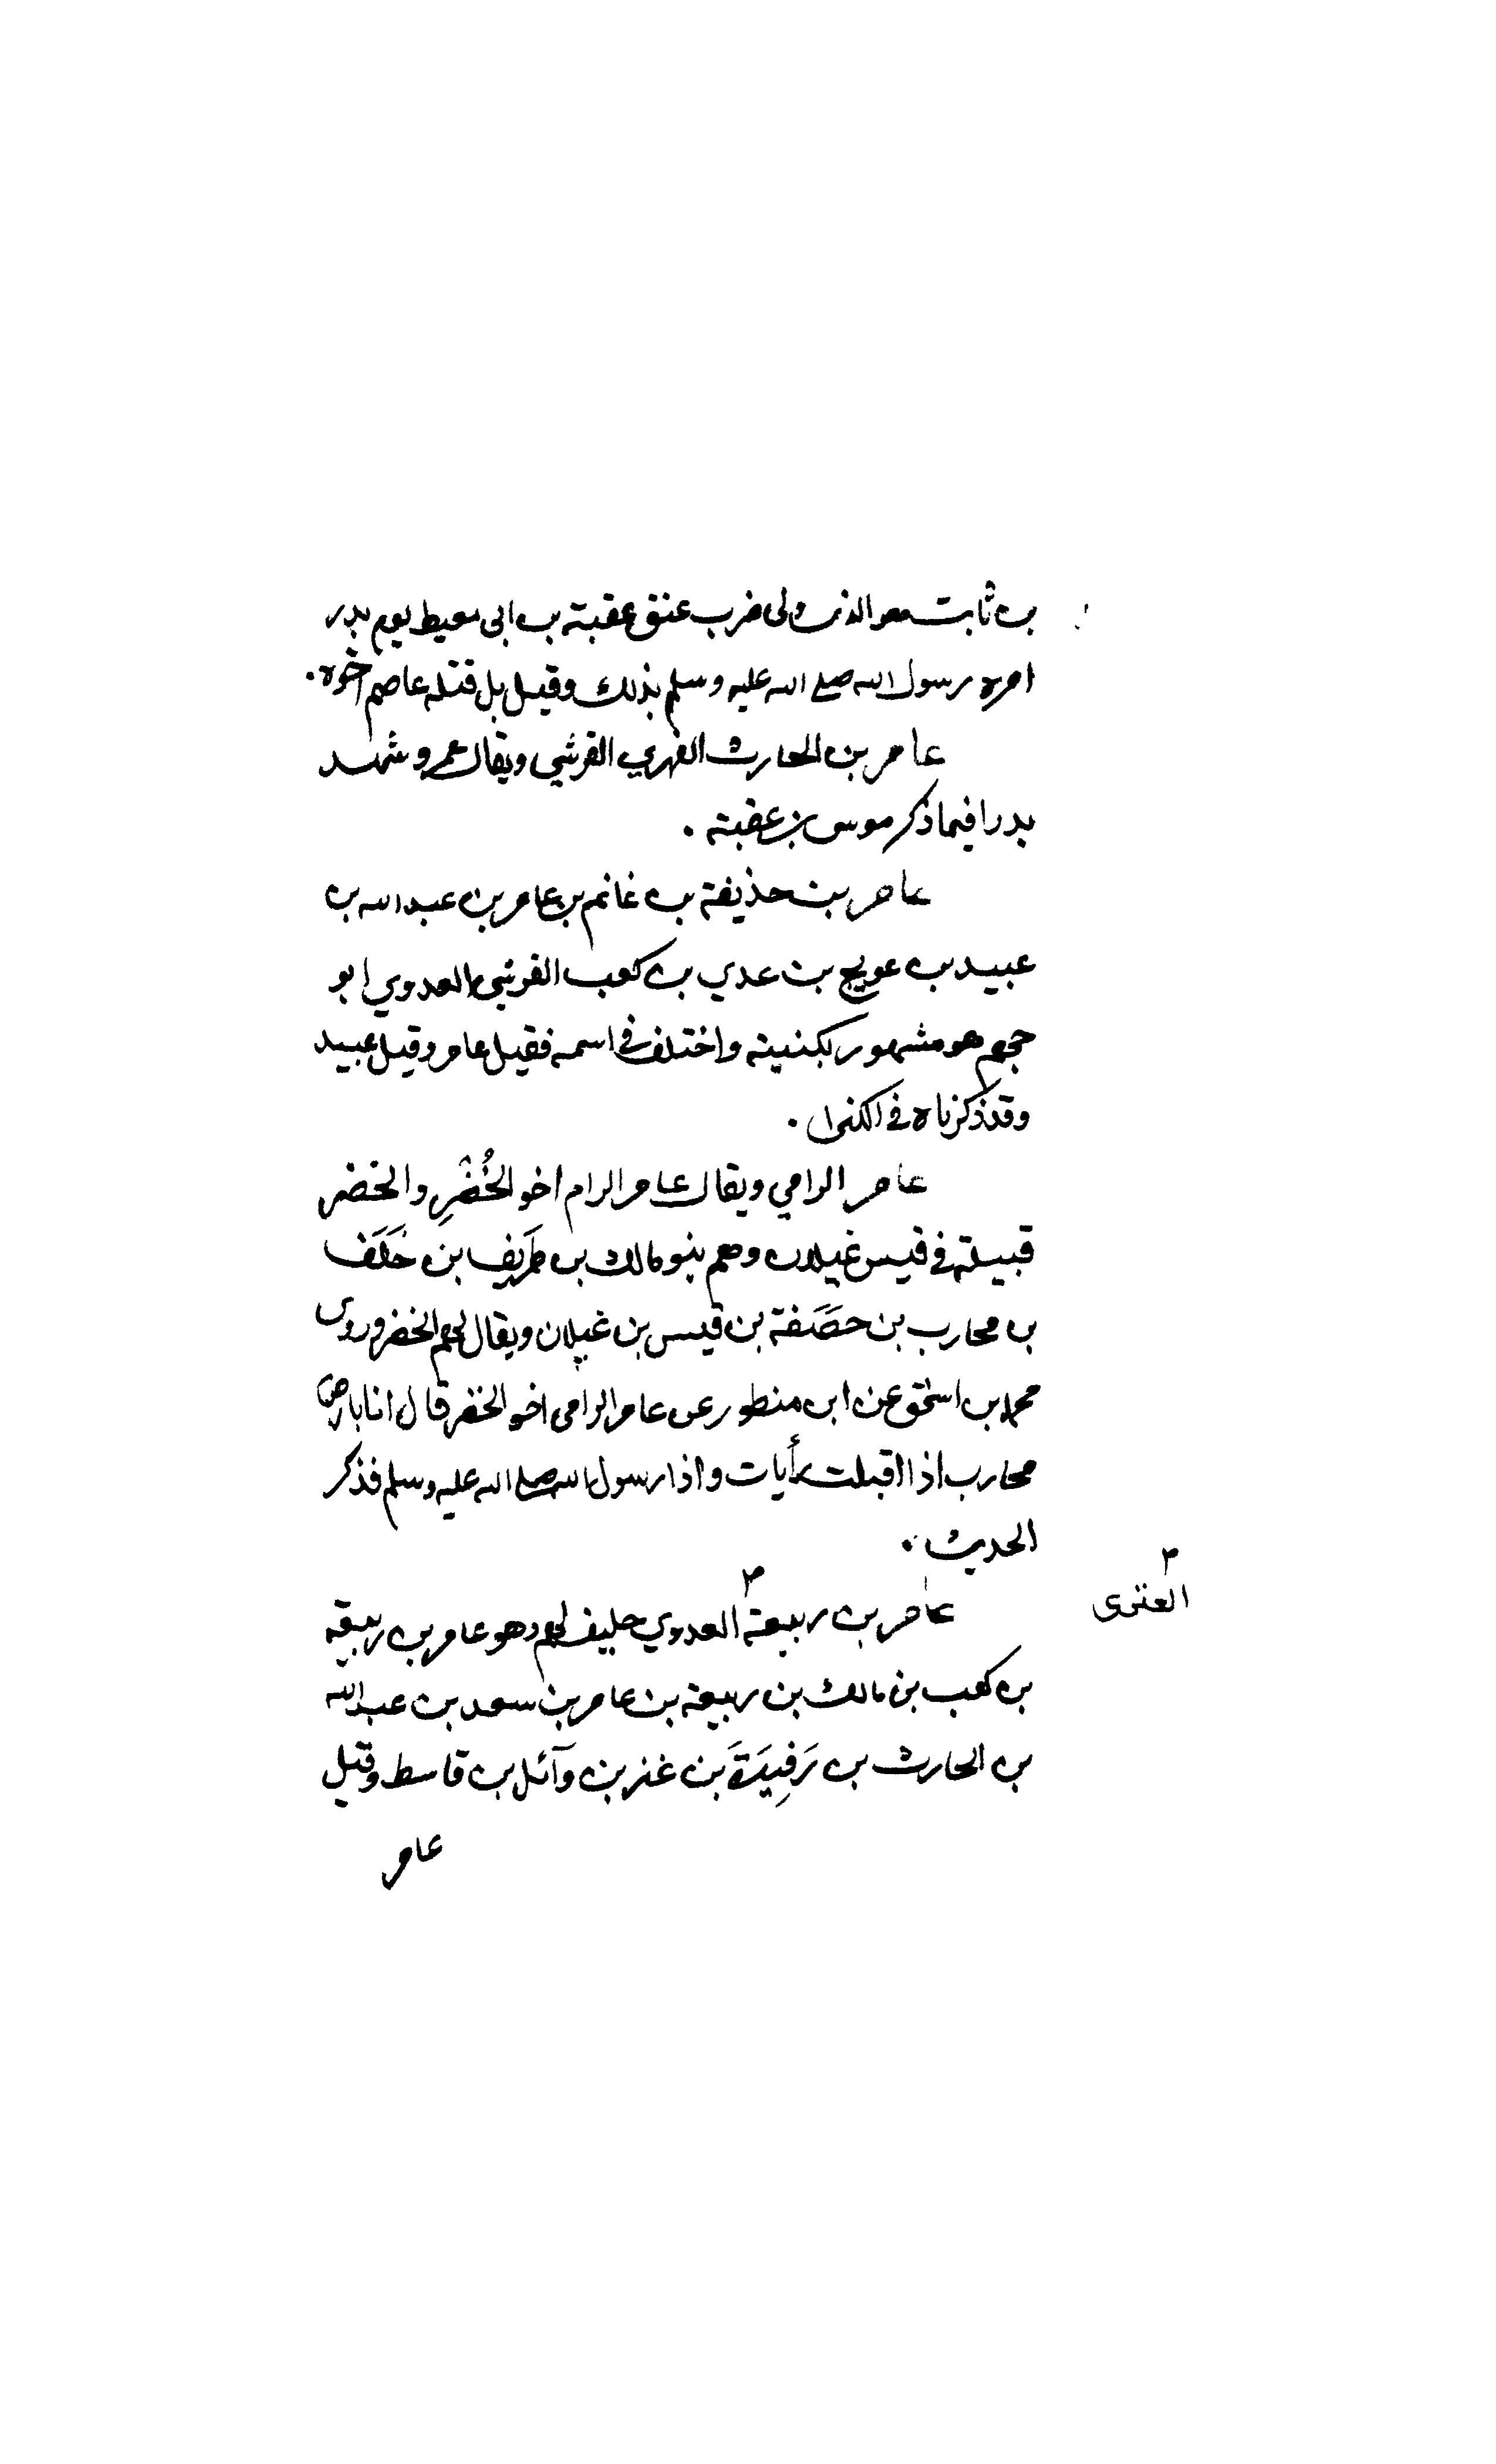 بن ثابت هو الذي ولى ضرب عنق عقبة بن ابى معيط يوم بدر
امره رسول الله صلى الله عليه وسلم بذلك وقيل بل قتله عاصم اخوه.
عامر بن الحارث الفهري القرشي ويقال عمرو شهد
بدرا فيما ذكر موسى بن عقبة.
عامر بن حذيفة بن غانم بن عامر بن عبد الله بن
عبيد بن عويج بن عدي بن كعب القرشي العدوي ابو
جهم هو مشهور بكنيته واختلف في اسمه فقيل عامر وقيل عبيد
وقد ذكرناه في الكنى.
عامر الرامي ويقال عامر الرام اخو الخُضْرِ والخضر
قبيلة في قيس غيلان وهم بنو مالك بن طَريف بن خَلَف
بن محارب بن حصَفَة بن قيس بن غيلان ويقال لهم الخضر وروى
محمد بن اسحق عن ابن منظور عن عامر الرامي اخو الخضر قال انا بارض
محارب اذا اقبلت رأيات واذا رسول الله صلى الله عليه وسلم فذكر
الحديث.
عامر بن ربيعة العدوي حليف لهم وهو عامر بن ربيعة
العنزى
بن كعب بن مالك بن ربيعة بن عامر بن سعد بن عبد الله
بن الحارث بن رَفِيدَةَ بن عنز بن وآئل بن قاسط وقيل
عامر